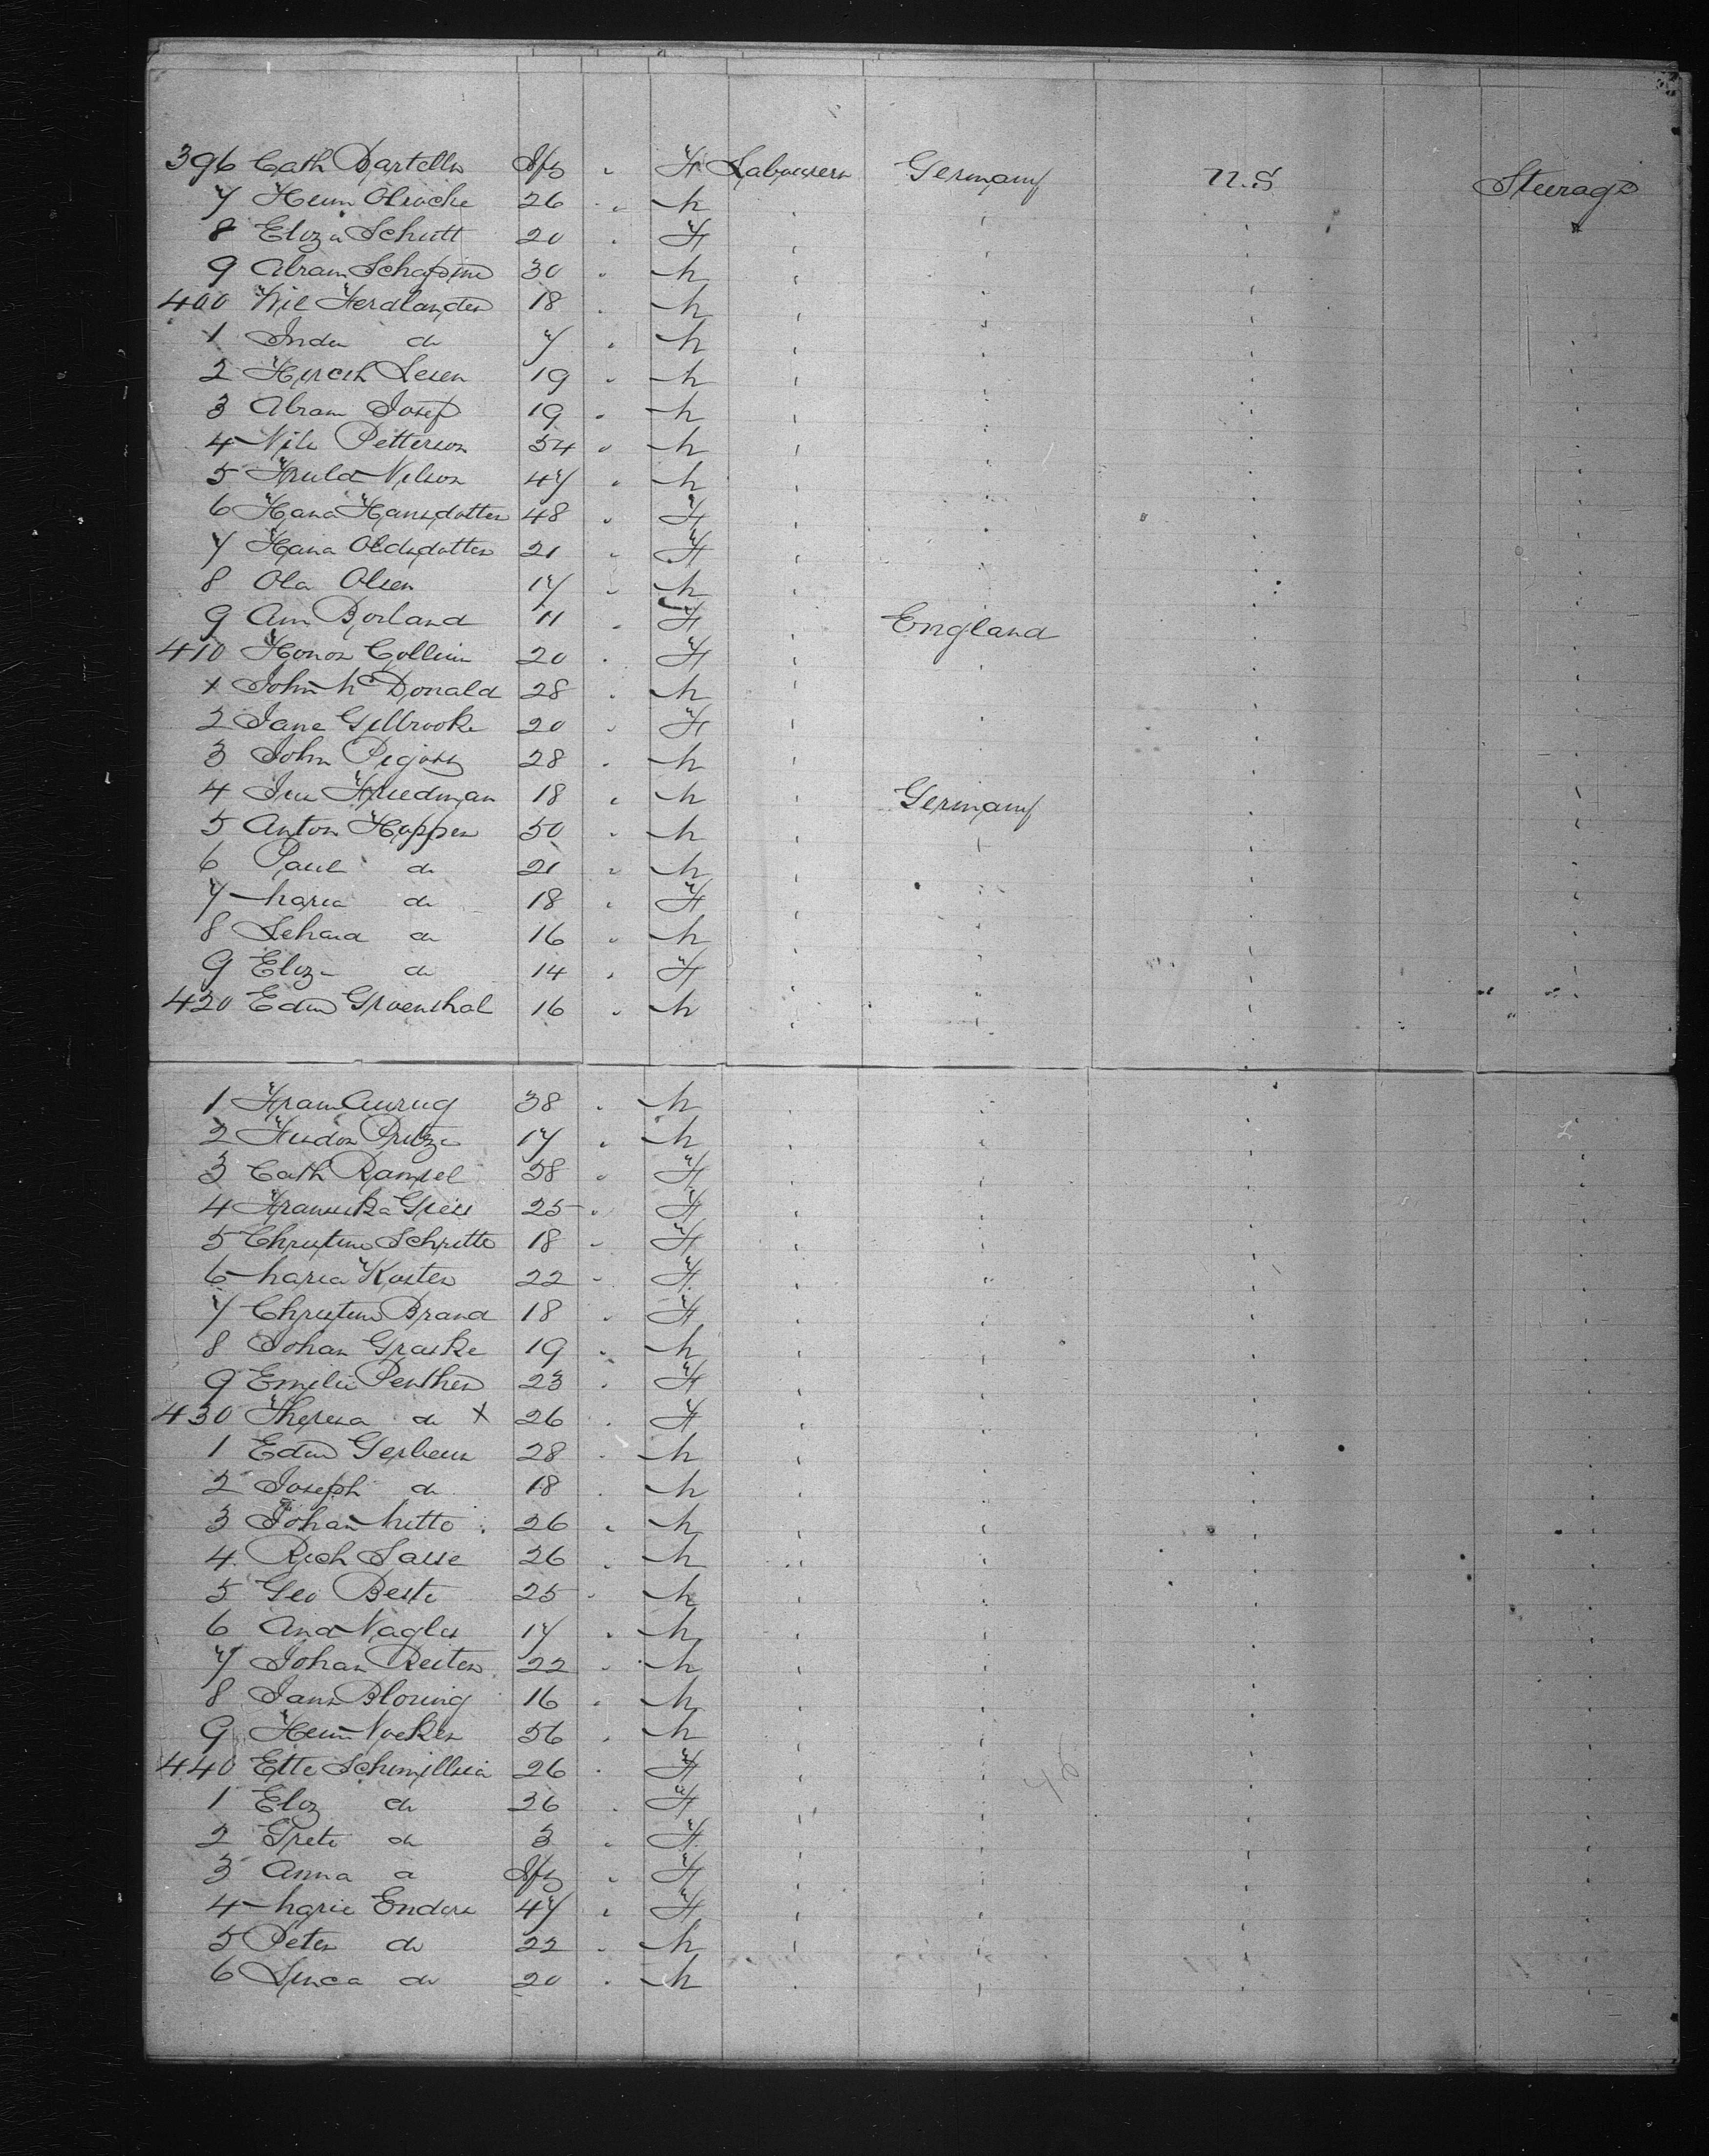 396 Cath Dartells Ifs " F Labourers Germany U.S Steerage
7 Heinr Olroche 26 " M
8 Eliza Schutt 20 " F
9 Abram Schapine 30 " M
400 Nil 18 " M
1 do 7 " M
2 Hirsch 19 " M
3 Abram Josef 19 " M
4 Nils Petterson 34 " M
5 Nelson 47 " M
6 Hana Hansdotter 48 " F
7 Hana Oldsdotter 21 " F
8 Ola Olsen 17 " M
9 Ann Borland 11 " F England
410 Honor Collins 20 " F
1 John McDonald 28 " M
2 Jane Gilbrooke 20 " F
3 John 28 " M
4 Friedman 18 " M Germany
5 Anton Hoppen 50 " M
6 Paul do 21 " M
7 Maria do 18 " F
8 do 16 " M
9 Eliz do 14 " F
420 Edw Groenthal 16 " M
1 38 " M
2 17 " M
3 Cath Rampel 38 " F
4 Franziska 25 " F
5 Christine Schritte 18 " F
6 Maria Koster 22 " F
7 Christine Brand 18 " F
8 Johan Graske 19 " M
9 Emilie Penther 23 " F
430 Theresa do X 26 " F
1 Edw 28 " M
2 Joseph do 18 " M
3 Johan Mitto 26 " M
4 Rich Sasse 26 " M
5 Geo Beste 25 " M
6 And Nagler 17 " M
7 Johan Reiter 22 " M
8 Bloring 16 " M
9 Heinr Nocker 56 " M
440 Ette 26 " F
1 Eliz do 26 " F
2 Grete do 3 " F
3 Anna do Ifs " F
4 Marie Enders 47 " F
5 Peter do 22 " M
6 do 20 " M